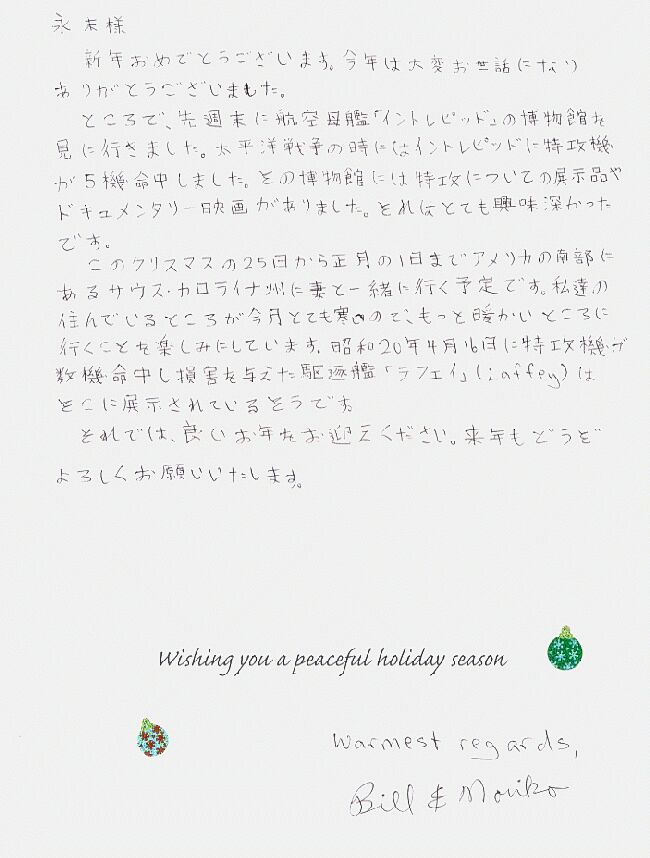 永末様
新年おめでとうございます。今年は大変お世話になり
ありがとうございました。
ところで、先週末に航空母艦「イントレピッド」の博物館を
見に行きました。太平洋戦争の時にはイントレピッドに特攻機
が5機命中しました。その博物館には特攻についての展示品や
ドキュメンタリー映画がありました。それはとても興味深かった
です。
このクリスマスの25日から正月の1日までアメリカの南部に
あるサウス・カロライナ州に妻と一緒に行く予定です。私達の
住んでいるところが今月とても寒いので、もっと暖かいところに
行くことを楽しみにしています。昭和20年4月16日に特攻機が
数機命中し損害を与えた駆逐艦「ラフェイ」(Laffey)は
そこに展示されているそうです。
それでは、良いお年をお迎えください。来年もどうぞ
よろしくお願いいたします。
Wishing you a peaceful holiday season
Warmest regards,
Bill & Moriko